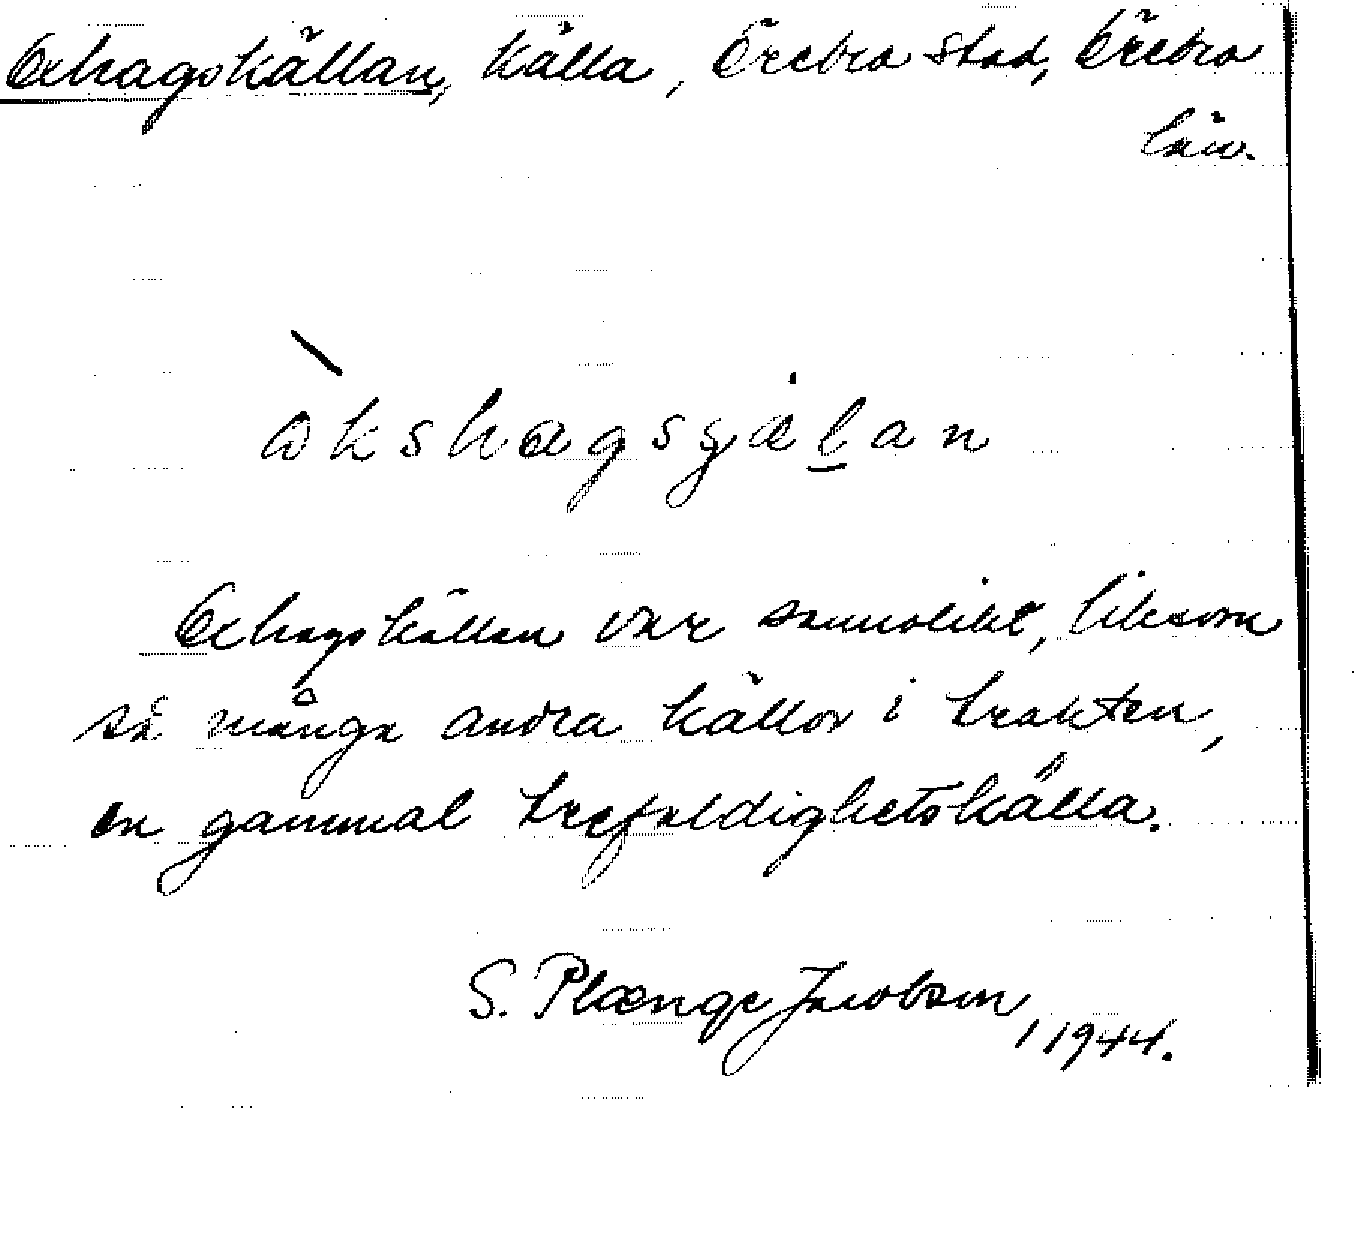 Oxhagskällan, källa, Örebro stad, Örebro
län.
òkshagsȷ̇älan
Oxhagskällan var sannolikt, liksom
så många andra källor i trakten,
en gammal trefaldighetskälla.
S. Plænge Jacobson, 1944.